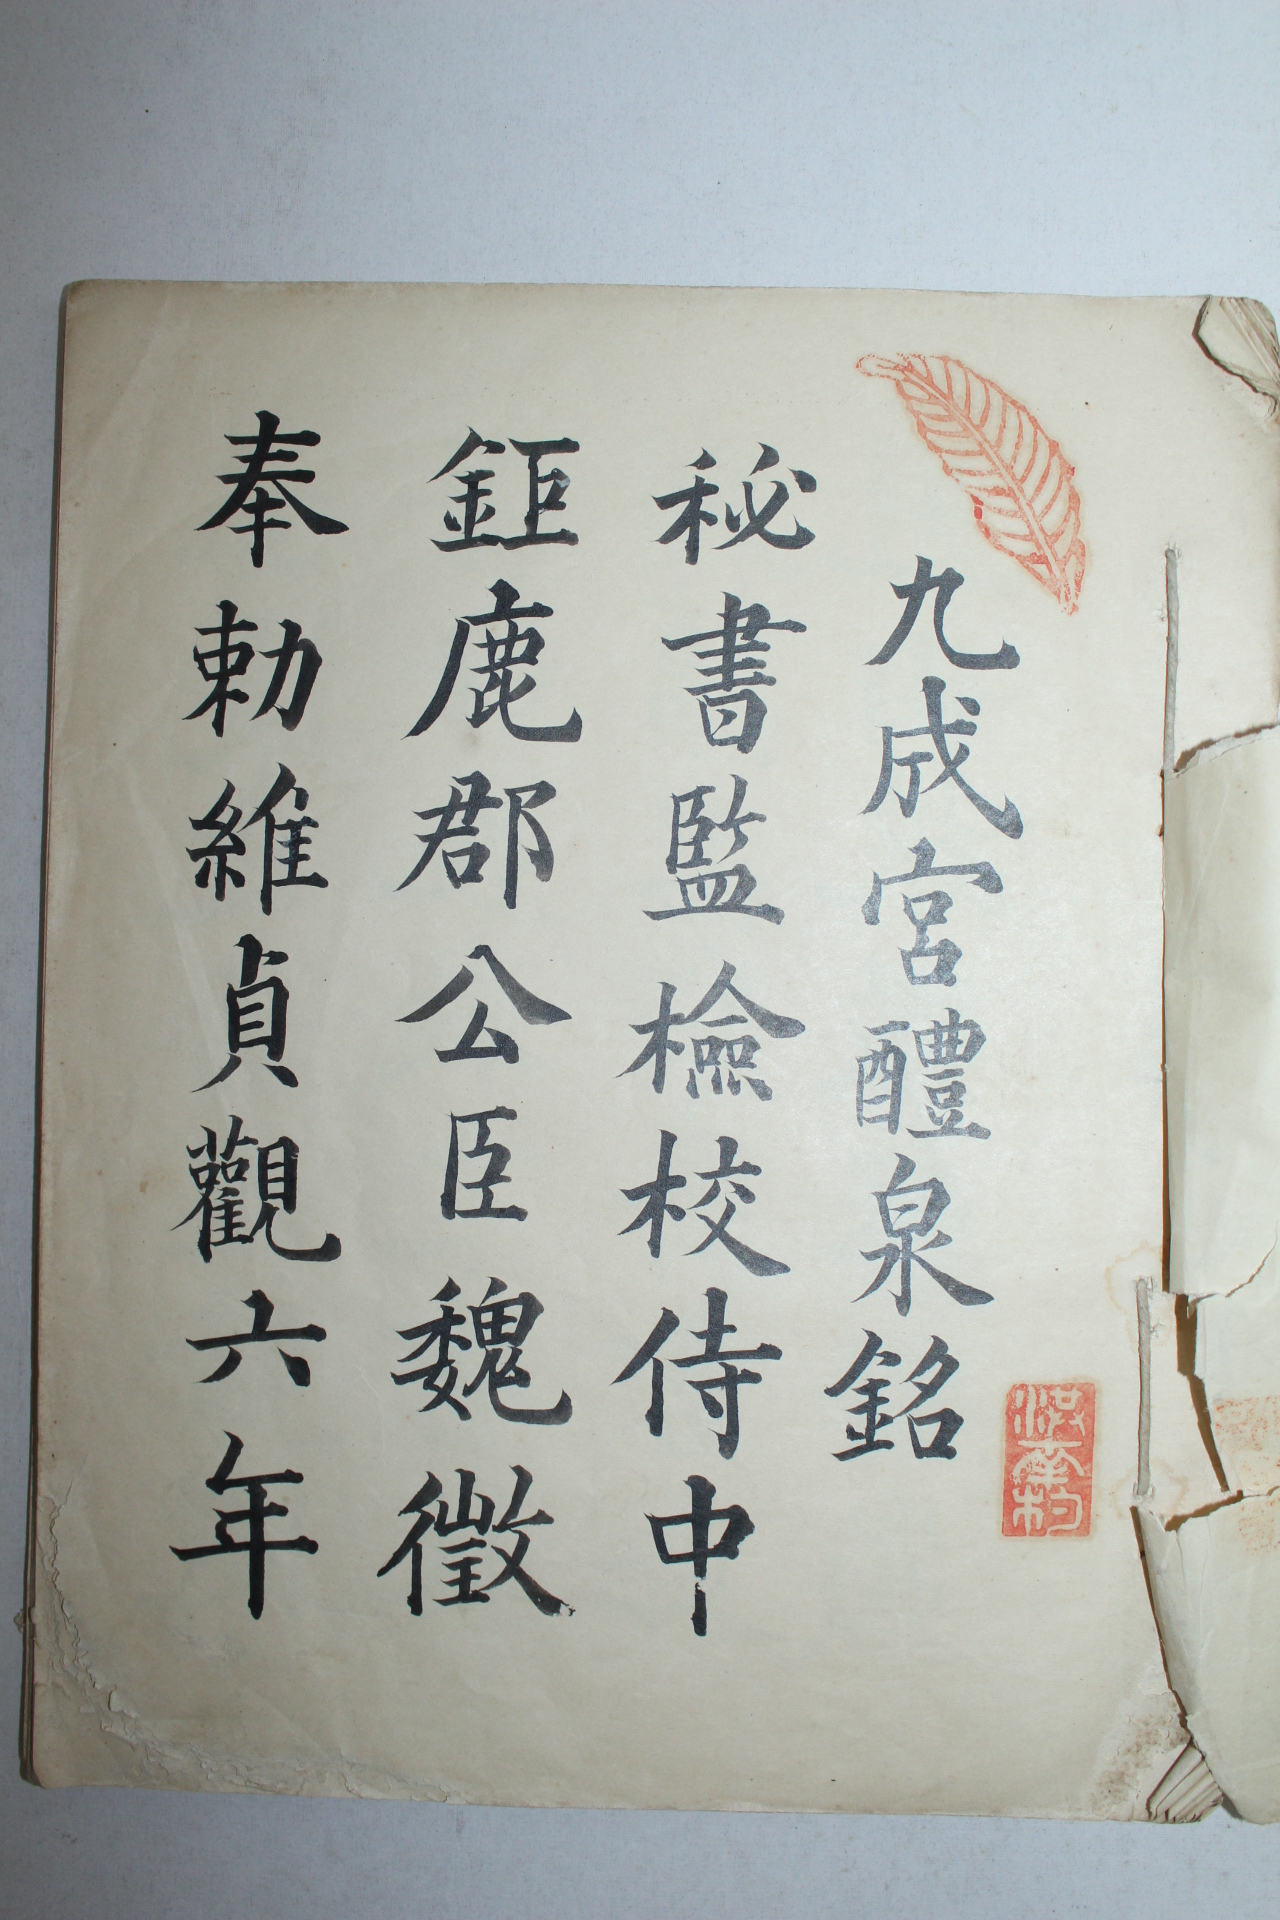 九成宮醴泉銘
秘書監檢校侍中
鉅鹿郡公臣魏徵
奉勅維貞觀六年